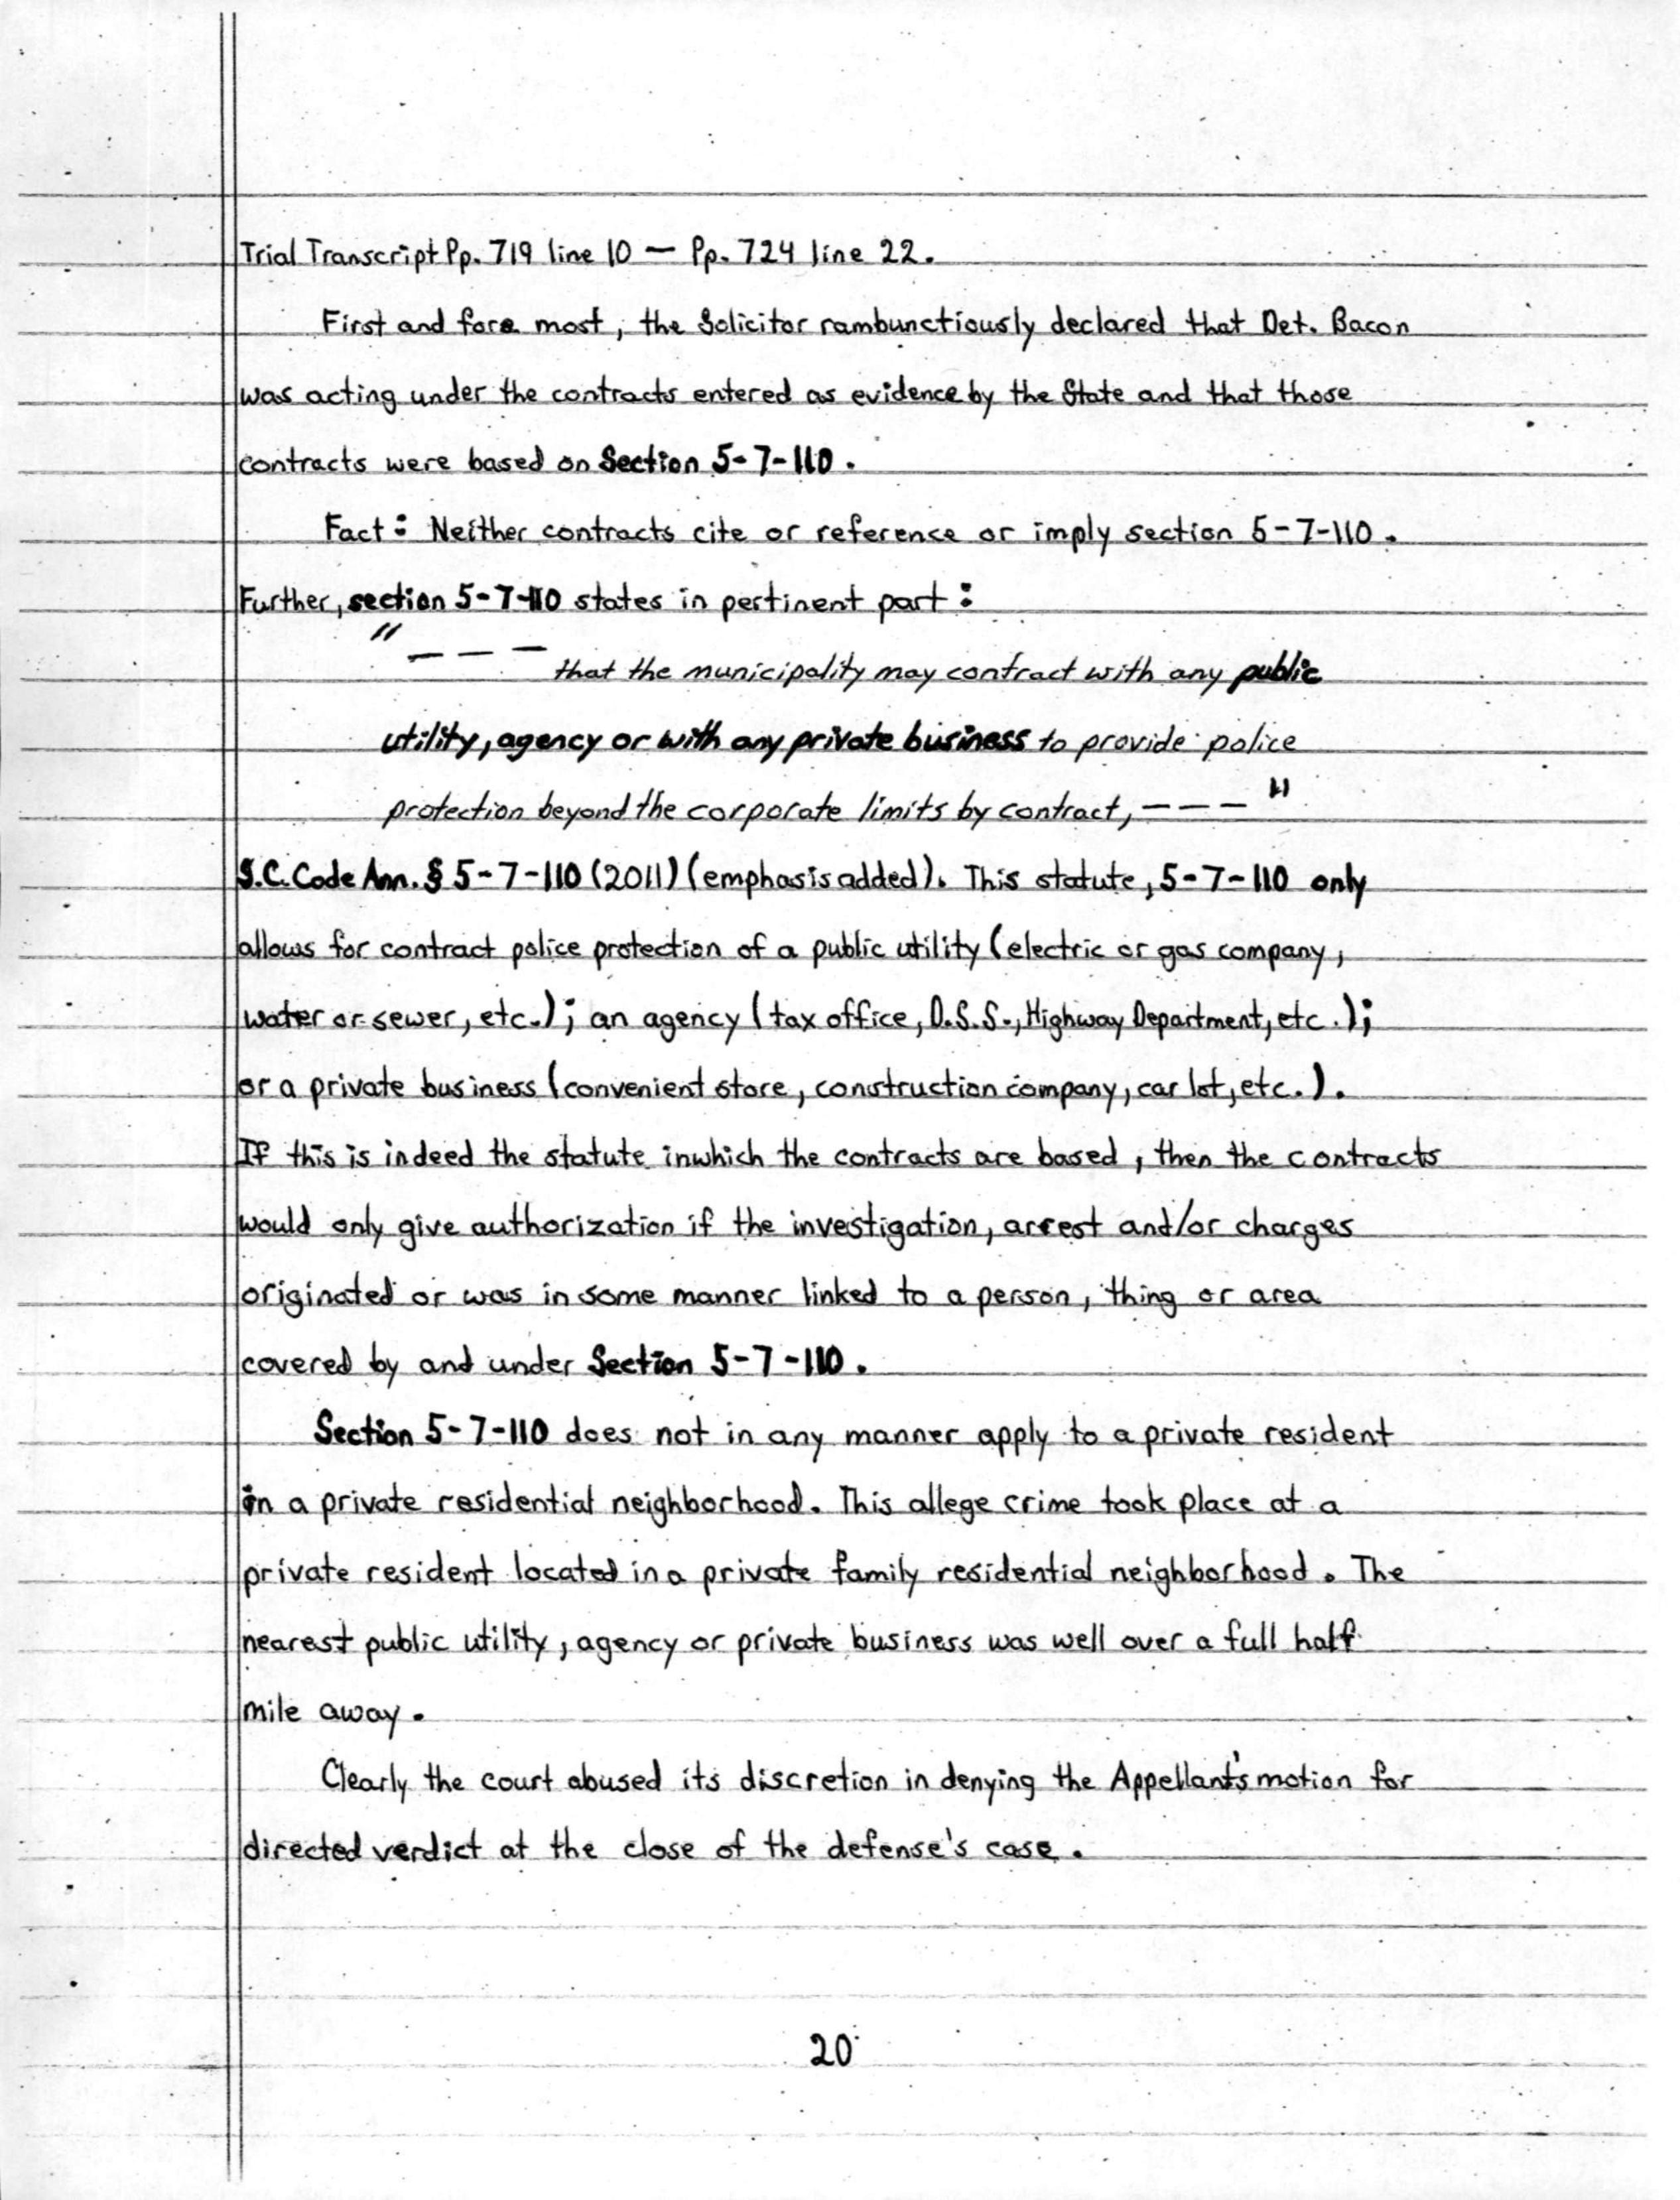 Trial Transcript Pp. 719 line 10 — Pp. 724 line 22.
First and fore most, the Solicitor rambunctiously declared that Det. Bacon
was acting under the contracts entered as evidence by the State and that those
contracts were based on Section 5-7-110.
Fact: Neither contracts cite or reference or imply section 5-7-110.
Further, section 5-7-110 states in pertinent part:
"--- that the municipality may contract with any public
utility, agency or with any private business to provide police
protection beyond the corporate limits by contract, ---"
S.C. Code Ann. § 5-7-110 (2011) (emphasis added). This statute, 5-7-110 only
allows for contract police protection of a public utility (electric or gas company,
water or sewer, etc.); an agency (tax office, D.S.S., Highway Department, etc.);
or a private business (convenient store, construction company, car lot, etc.).
If this is indeed the statute inwhich the contracts are based, then the contracts
would only give authorization if the investigation, arrest and/or charges
originated or was in some manner linked to a person, thing or area
covered by and under Section 5-7-110.
Section 5-7-110 does not in any manner apply to a private resident
in a private residential neighborhood. This allege crime took place at a
private resident located in a private family residential neighborhood. The
nearest public utility, agency or private business was well over a full half
mile away.
Clearly the court abused its discretion in denying the Appellant's motion for
directed verdict at the close of the defense's case.
20